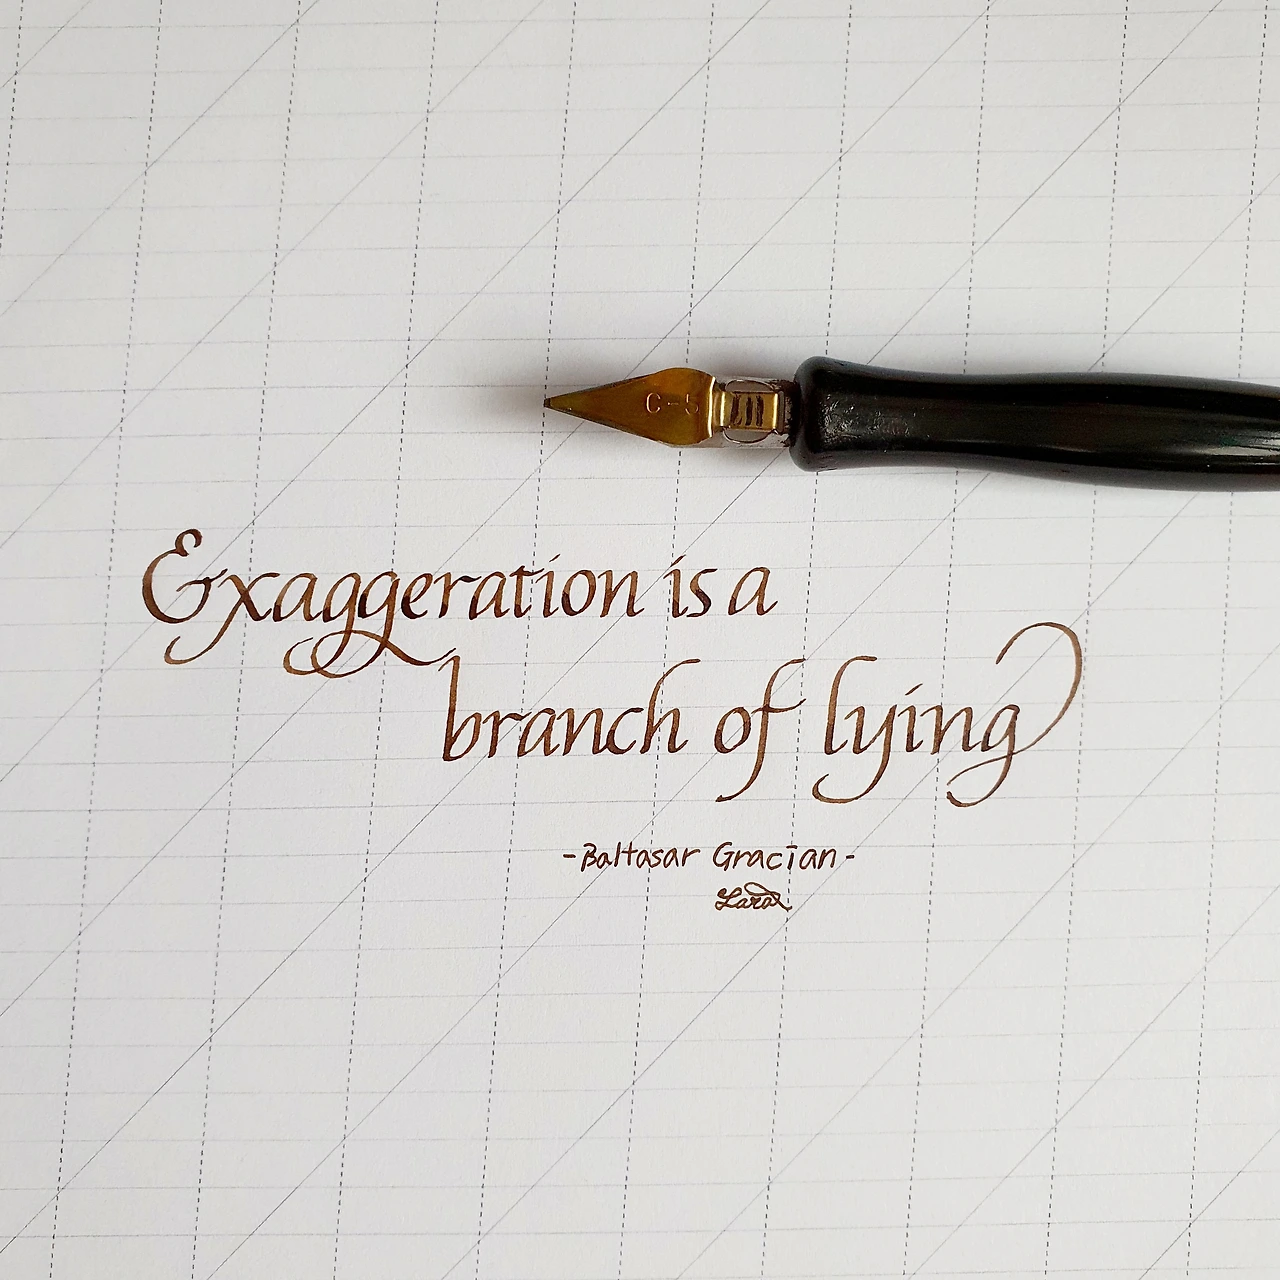 C-5
Exaggeration is a
branch of lying
-Baltasar Gracian-
Lara